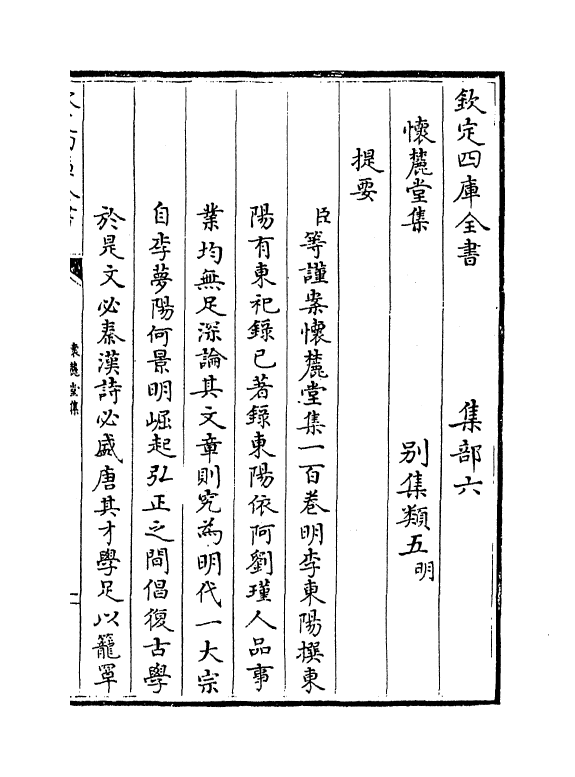 欽定四庫全書　集部六
懷麓堂集　別集類五明
提要
臣等謹案懷麓堂集一百卷明李東陽撰東
陽有東祀錄已著錄東陽依阿劉瑾人品事
業均無足深論其文章則究為明代一大宗
自李夢陽何景明崛起弘正之間倡復古學
於是文必秦漢詩必盛唐其才學足以籠罩
懷麓堂集